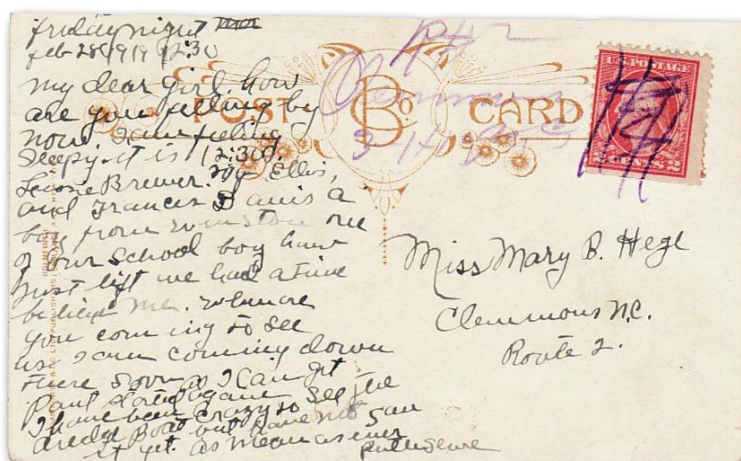 friday night
feb 28 1919 12:30
my dear girl. how
are you felling by
now. I am feeling
Sleepy it is 12:30.
Brewer. Ellis,
and Francis Davis a
boy from winston one
of our School boy have
Just lift we had a time
believe me. when are
you com ing to see
us I am coming down
there Soon as I can get
Paul
I have been crazy to See the
Boat but have not saw
it yet. as mean as ever
POST CARD
Co.
R#2
Clemmons
3-1-19
U.S. POSTAGE
2 CENTS 2
Miss Mary B. Hege
Clemmons N.C.
Route 2.